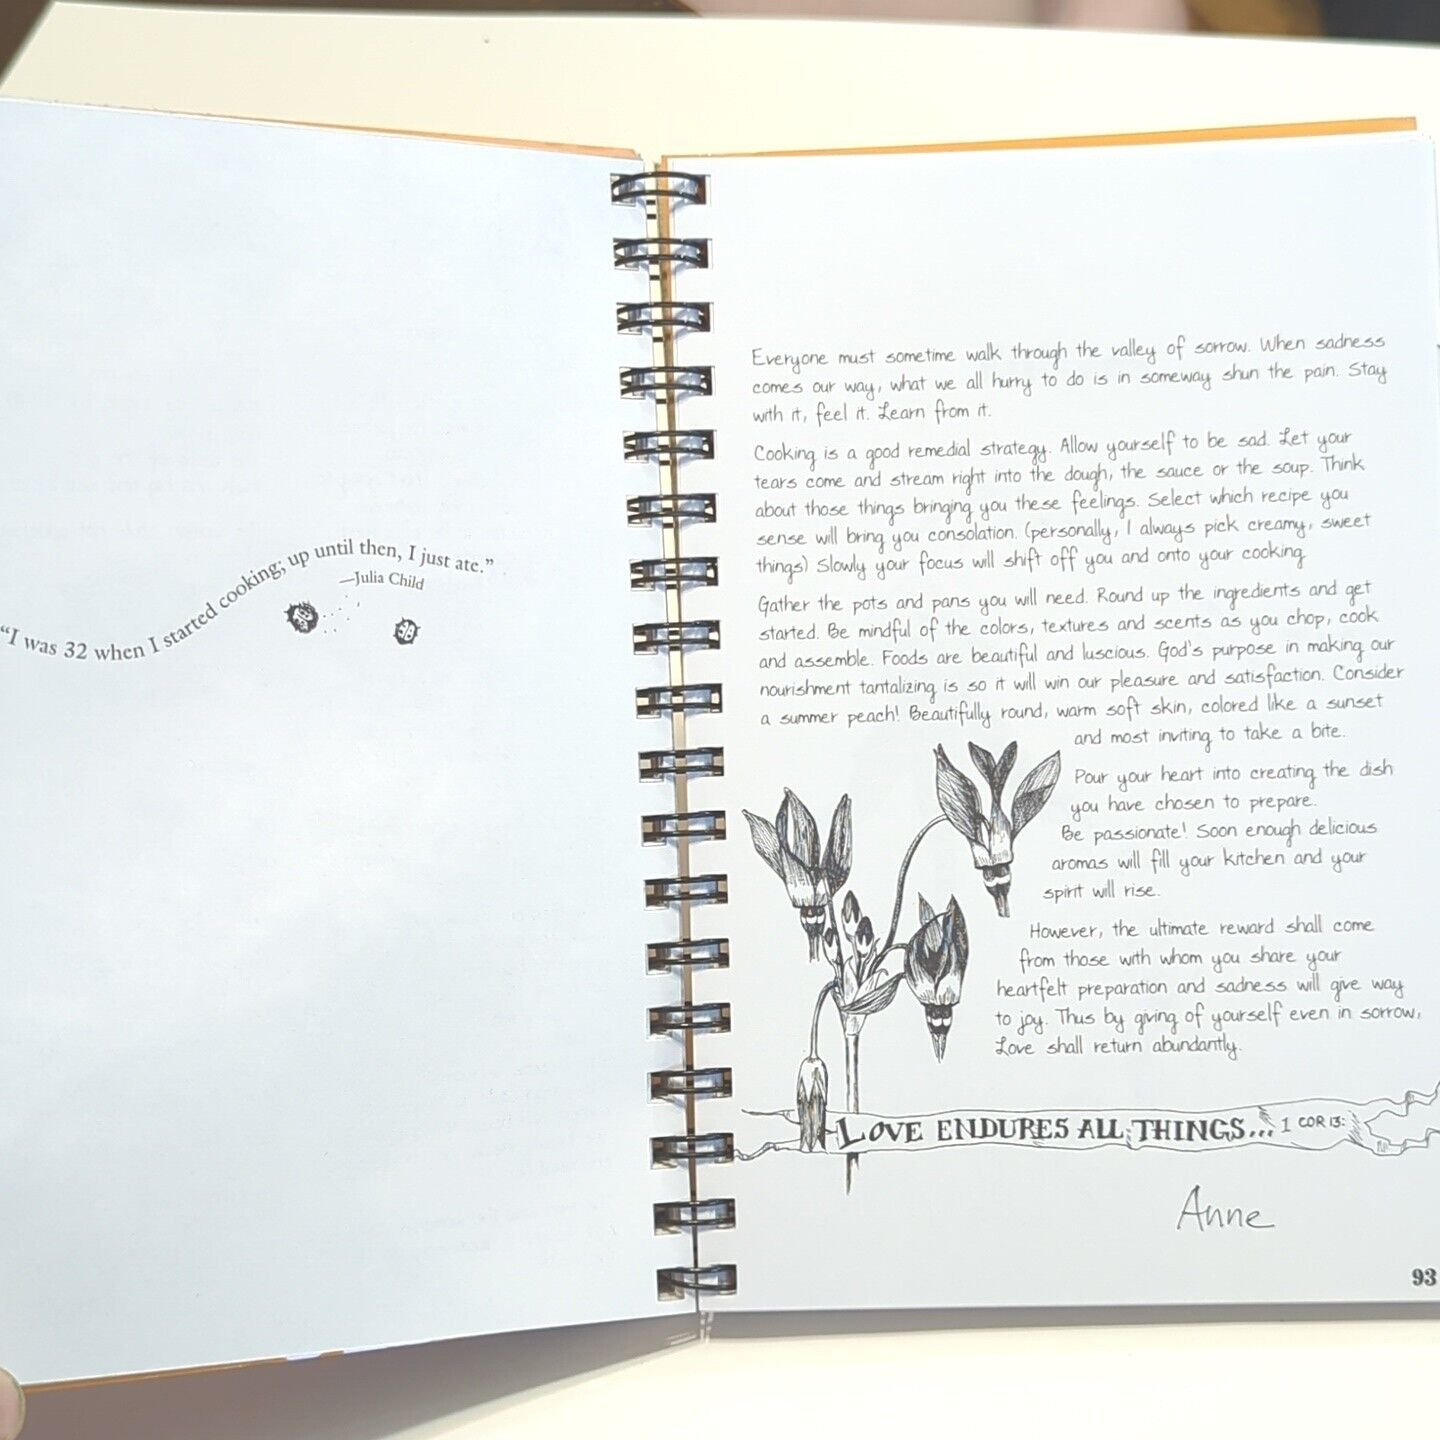 “I was 32 when I started cooking; up until then, I just ate.”
—Julia Child
Everyone must sometime walk through the valley of sorrow. When sadness
comes our way, what we all hurry to do is in someway shun the pain. Stay
with it, feel it. Learn from it.
Cooking is a good remedial strategy. Allow yourself to be sad. Let your
tears come and stream right into the dough, the sauce or the soup. Think
about those things bringing you these feelings. Select which recipe you
sense will bring you consolation. (personally, I always pick creamy, sweet
things) Slowly your focus will shift off you and onto your cooking
Gather the pots and pans you will need. Round up the ingredients and get
started. Be mindful of the colors, textures and scents as you chop, cook
and assemble. Foods are beautiful and luscious. God's purpose in making our
nourishment tantalizing is so it will win our pleasure and satisfaction. Consider
a summer peach! Beautifully round, warm soft skin, colored like a sunset
and most inviting to take a bite.
Pour your heart into creating the dish
you have chosen to prepare.
Be passionate! Soon enough delicious
aromas will fill your kitchen and your
spirit will rise.
However, the ultimate reward shall come
from those with whom you share your
heartfelt preparation and sadness will give way
to joy. Thus by giving of yourself even in sorrow,
Love shall return abundantly.
LOVE ENDURES ALL THINGS... 1 COR 13:
Anne
93